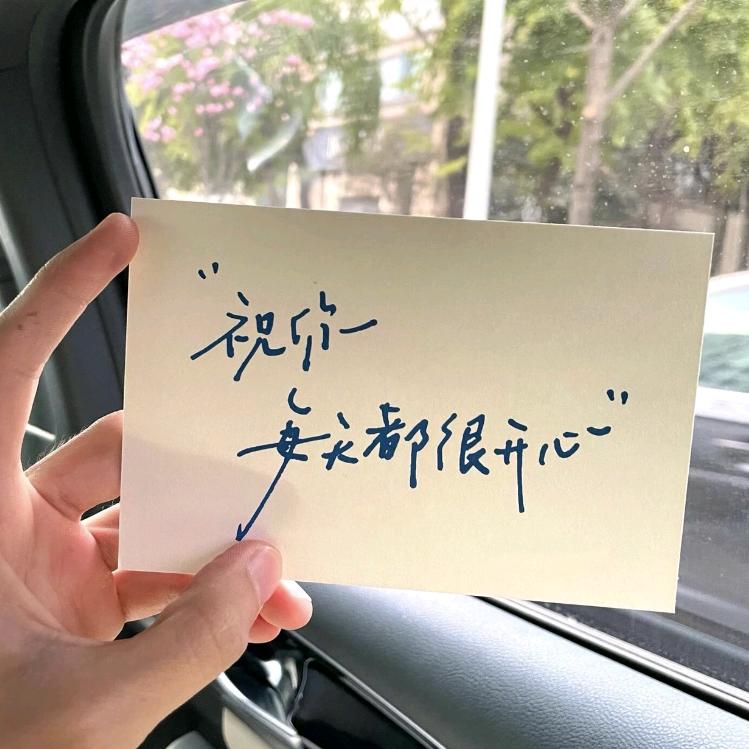 "祝你
每天都很开心"